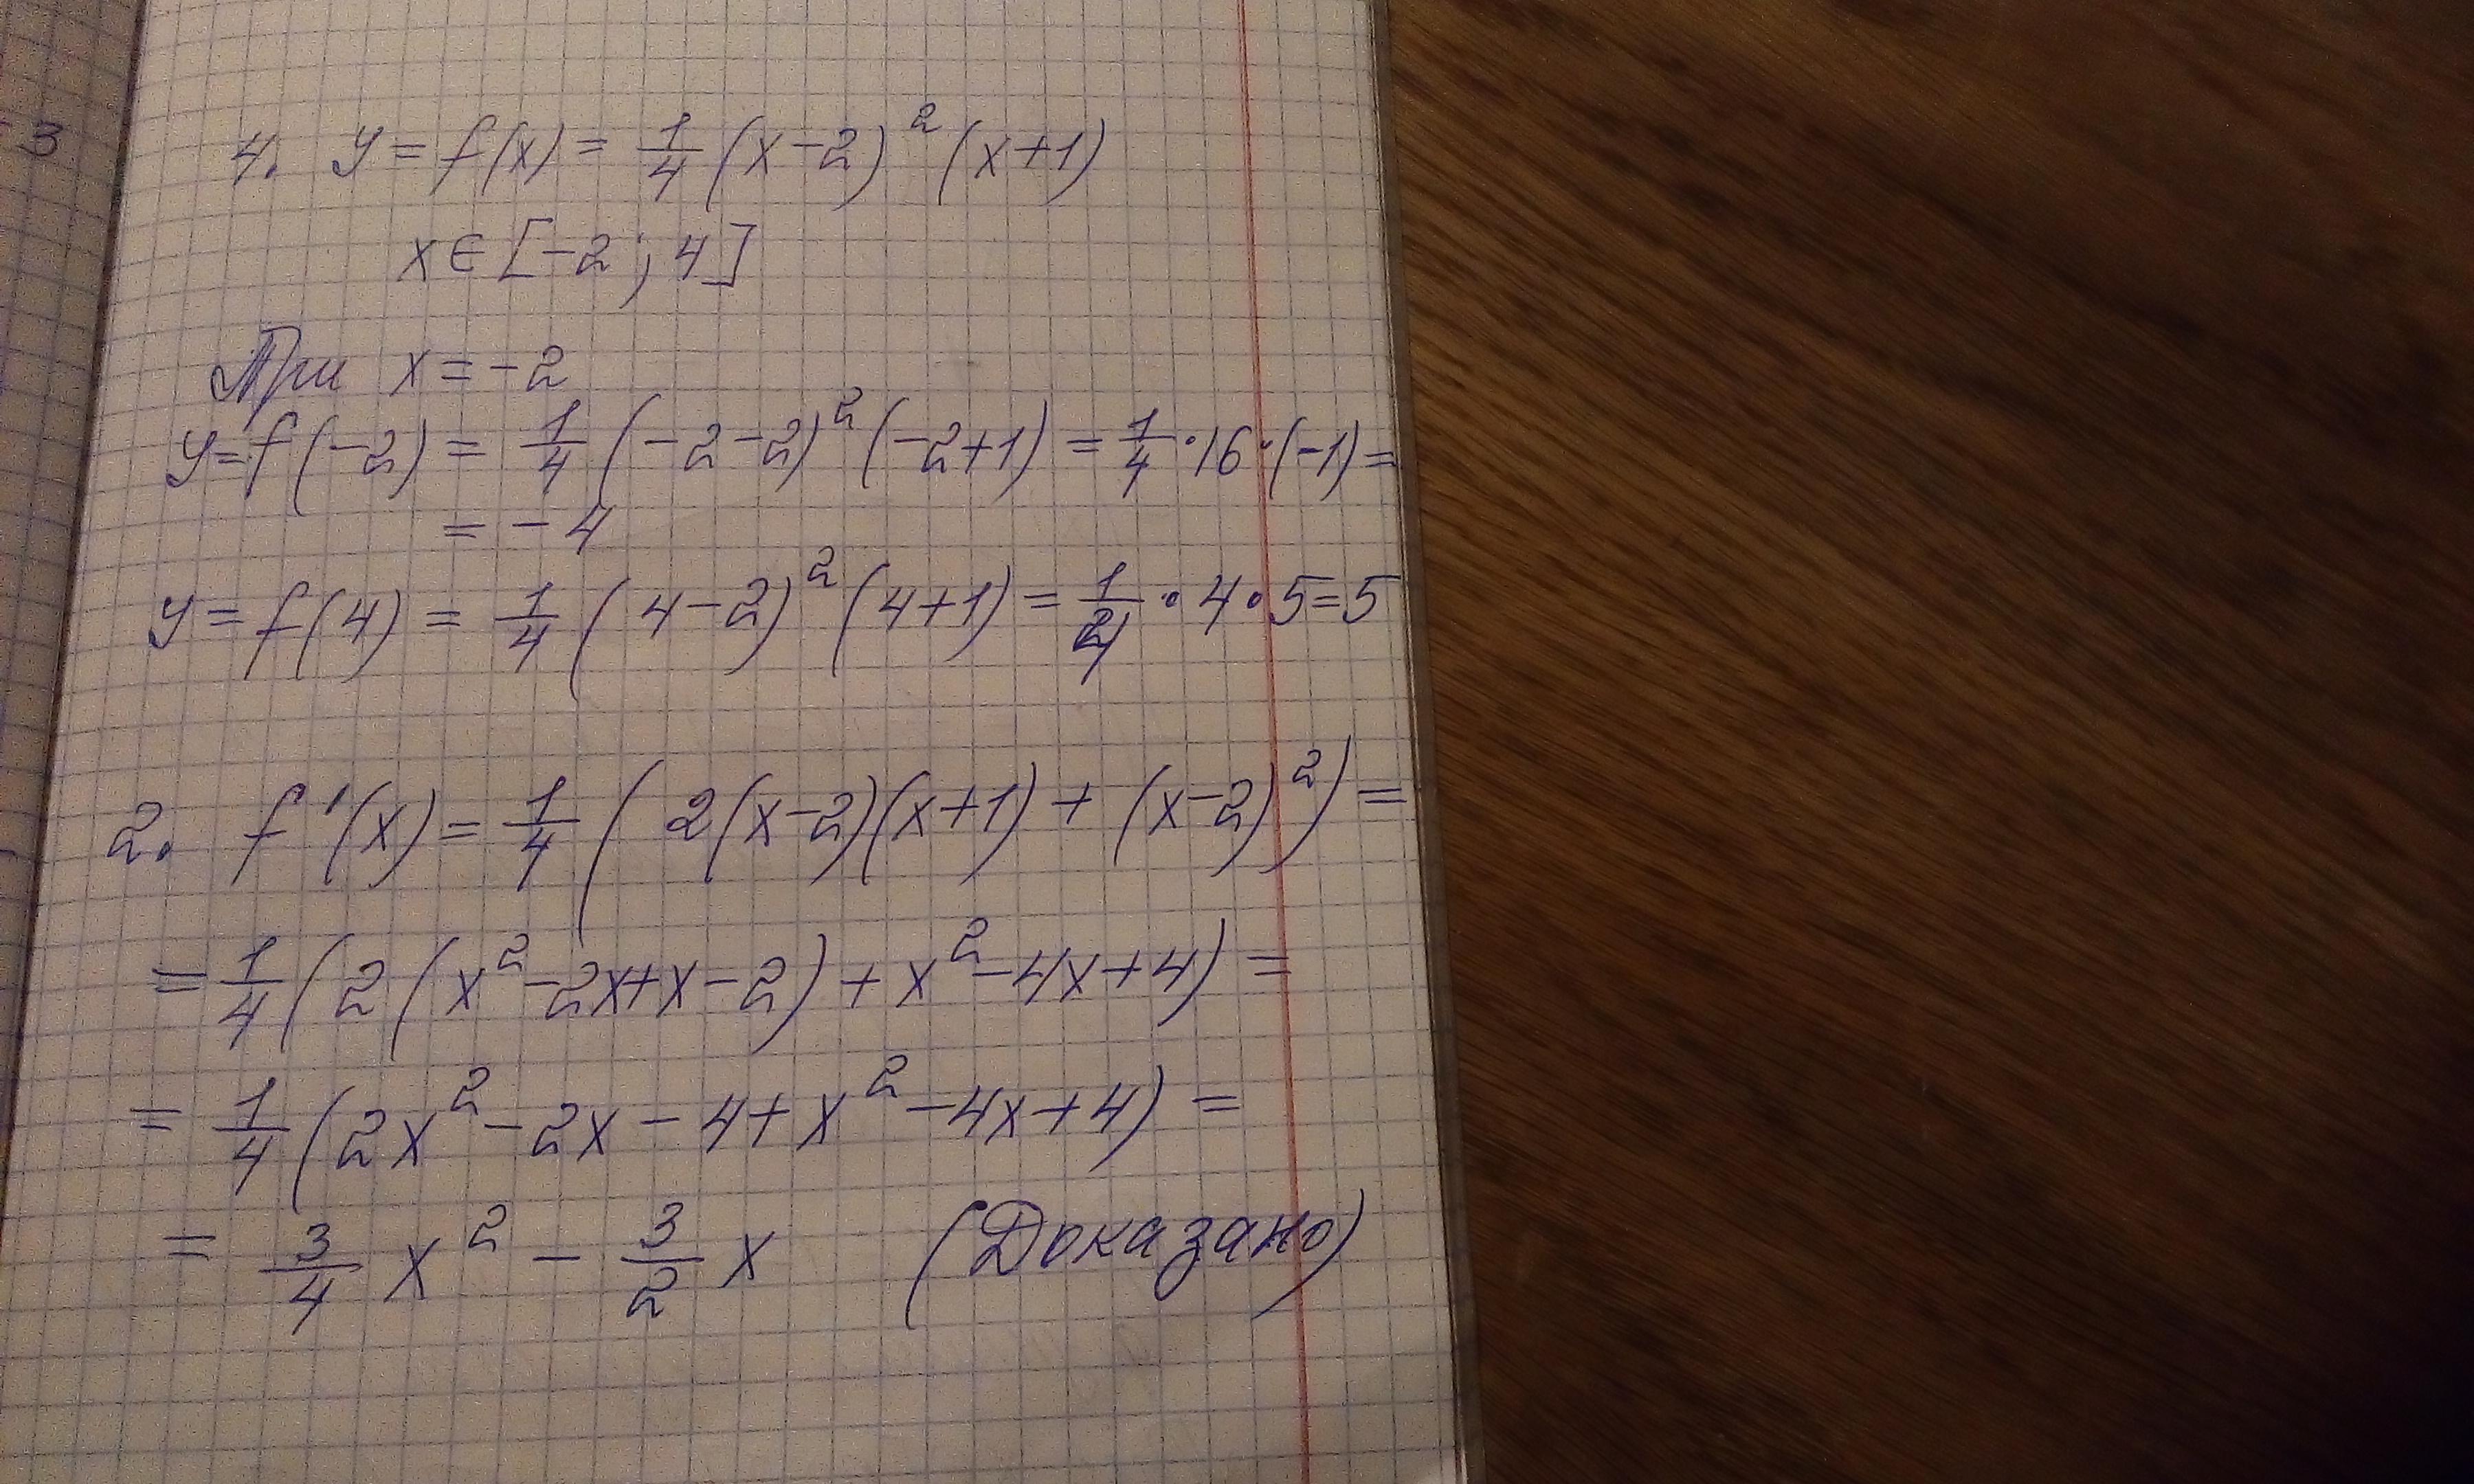 3
4. y = f(x) = 1/4 (x-2)² (x+1)
x ∈ [-2; 4]
При x = -2
y = f(-2) = 1/4 (-2-2)² (-2+1) = 1/4 · 16 · (-1) =
= -4
y = f(4) = 1/4 (4-2)² (4+1) = 1/4 · 4 · 5 = 5
2. f'(x) = 1/4 (2(x-2)(x+1) + (x-2)²) =
= 1/4 (2(x² - 2x + x - 2) + x² - 4x + 4) =
= 1/4 (2x² - 2x - 4 + x² - 4x + 4) =
= 3/4 x² - 3/2 x (Доказано)